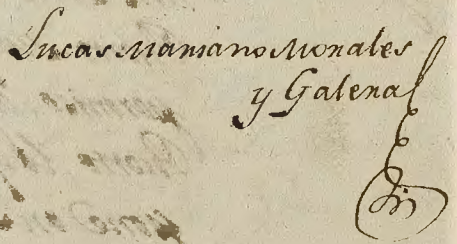 Lucas Mariano Morales
y Galera